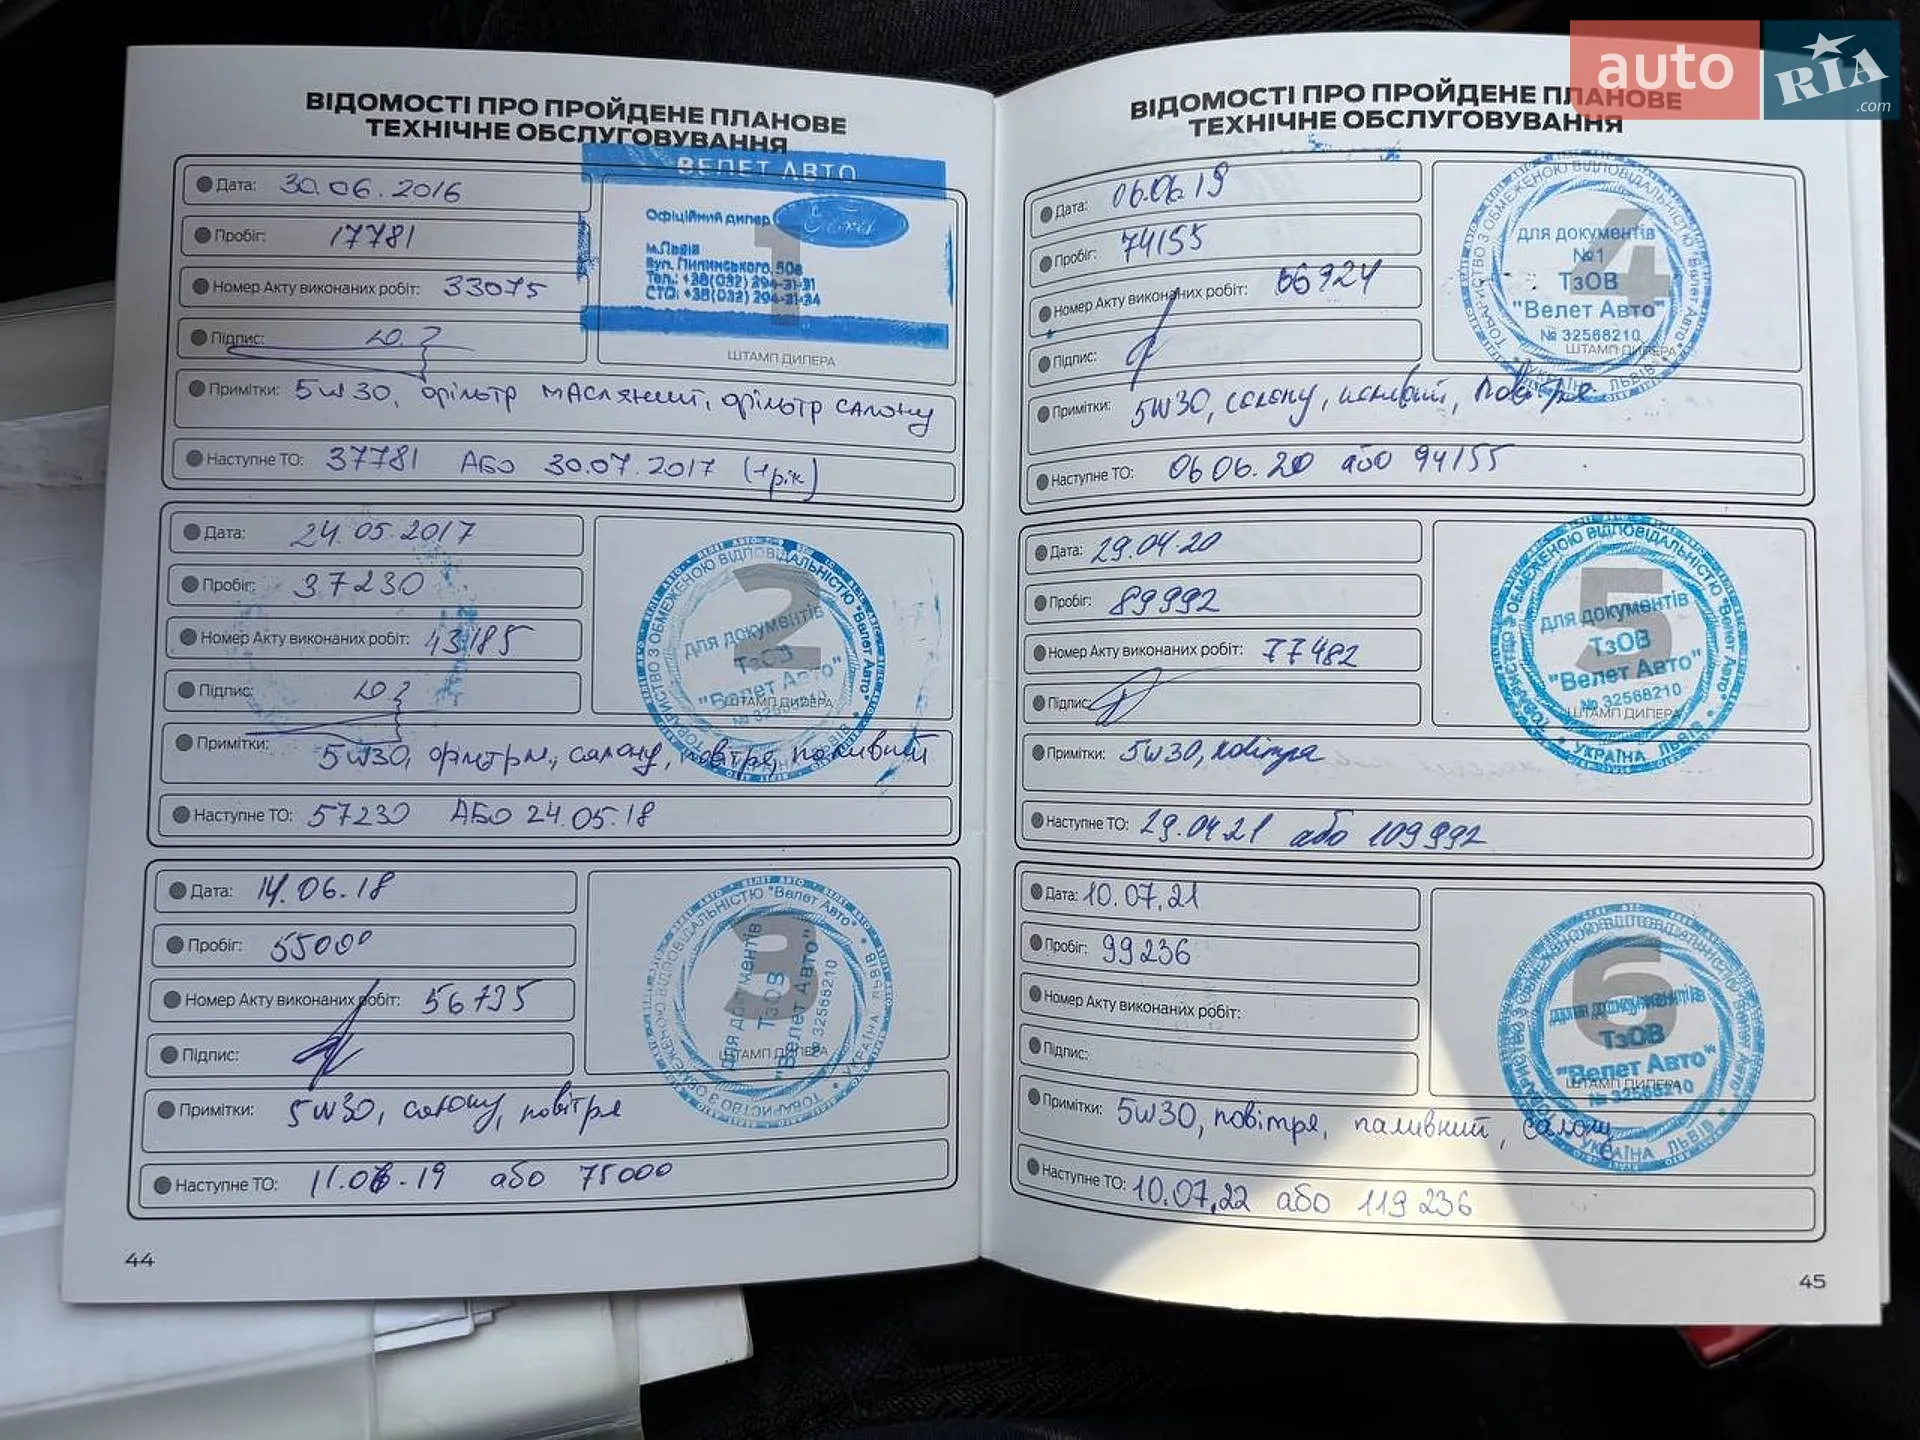 auto RIA .com
ВІДОМОСТІ ПРО ПРОЙДЕНЕ ПЛАНОВЕ
ТЕХНІЧНЕ ОБСЛУГОВУВАННЯ
Дата: 30.06.2016
Пробіг: 17781
Номер Акту виконаних робіт: 33075
Підпис:
ВЕЛЕТ АВТО
Офіційний дилер Ford
1
м.Львів
Вул. Липинського, 50в
Тел.: +38(032) 294-31-31
СТО: +38(032) 294-31-34
ШТАМП ДИЛЕРА
Примітки: 5w30, фільтр масляний, фільтр салону
Наступне ТО: 37781 АБО 30.07.2017 (1 рік)
Дата: 24.05.2017
Пробіг: 37230
Номер Акту виконаних робіт: 43185
Підпис:
2
ТОВАРИСТВО З ОБМЕЖЕНОЮ ВІДПОВІДАЛЬНІСТЮ "Велет Авто"
для документів
ТзОВ
"Велет Авто"
№ 32568210
ШТАМП ДИЛЕРА
Примітки: 5w30, фільтри, салону, повітря, паливний
Наступне ТО: 57230 АБО 24.05.18
Дата: 14.06.18
Пробіг: 55000
Номер Акту виконаних робіт: 56735
Підпис:
3
ТОВАРИСТВО З ОБМЕЖЕНОЮ ВІДПОВІДАЛЬНІСТЮ "Велет Авто" * УКРАЇНА ЛЬВІВ *
для документів
ТзОВ
"Велет Авто"
№ 32568210
ШТАМП ДИЛЕРА
Примітки: 5w30, салону, повітря
Наступне ТО: 11.06.19 або 75000
44
ВІДОМОСТІ ПРО ПРОЙДЕНЕ ПЛАНОВЕ
ТЕХНІЧНЕ ОБСЛУГОВУВАННЯ
Дата: 06.06.19
Пробіг: 74155
Номер Акту виконаних робіт: 66924
Підпис:
4
ТОВАРИСТВО З ОБМЕЖЕНОЮ ВІДПОВІДАЛЬНІСТЮ "Велет Авто" * УКРАЇНА ЛЬВІВ *
для документів
№1
ТзОВ
"Велет Авто"
№ 32568210
ШТАМП ДИЛЕРА
Примітки: 5W30, салону, паливний, повітря
Наступне ТО: 06 06.20 або 94155
Дата: 29.04.20
Пробіг: 89992
Номер Акту виконаних робіт: 77482
Підпис:
5
ТОВАРИСТВО З ОБМЕЖЕНОЮ ВІДПОВІДАЛЬНІСТЮ "Велет Авто" * УКРАЇНА ЛЬВІВ *
для документів
ТзОВ
"Велет Авто"
№ 32568210
ШТАМП ДИЛЕРА
Примітки: 5w30, повітря
Наступне ТО: 29.04.21 або 109992
Дата: 10.07.21
Пробіг: 99236
Номер Акту виконаних робіт:
Підпис:
6
для документів
ТзОВ
"Велет Авто"
№ 32568210
УКРАЇНА ЛЬВІВ
ШТАМП ДИЛЕРА
Примітки: 5w30, повітря, паливний, салону
Наступне ТО: 10.07.22 або 119 236
45